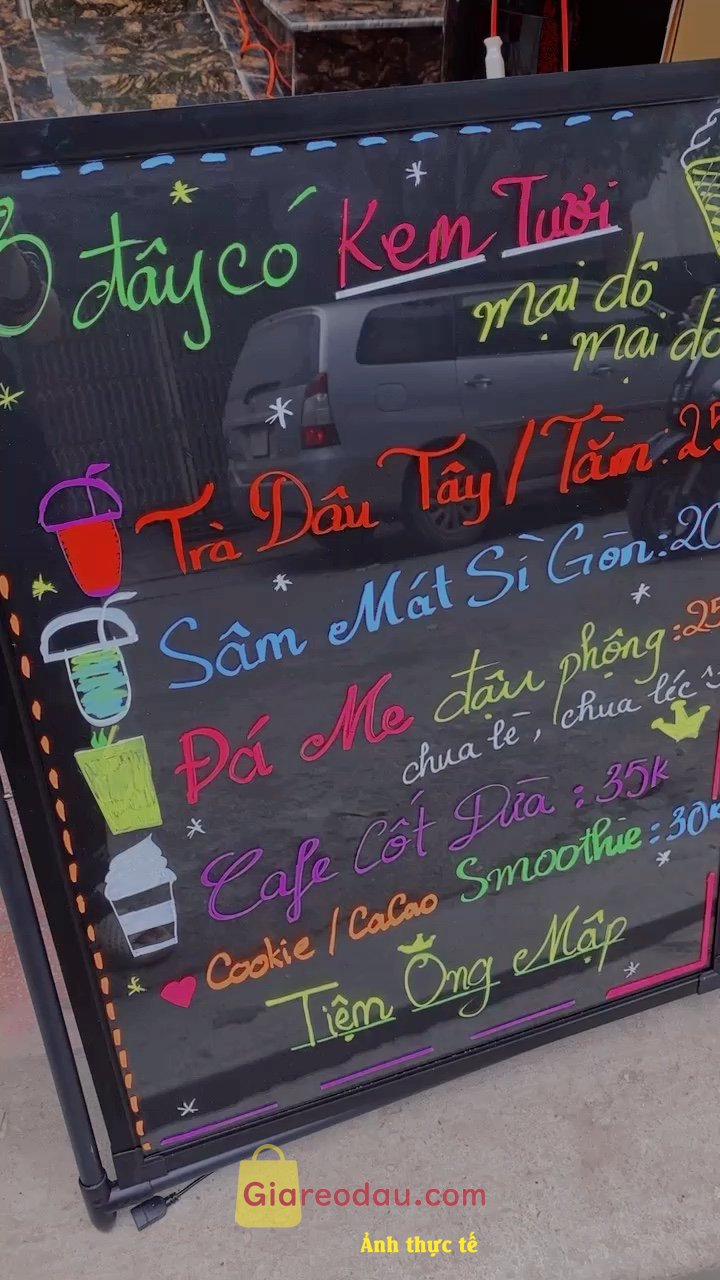 Ở đây có Kem Tươi
mại dô
mại dô
Trà Dâu Tây / Tằm: 25
Sâm Mát Sì Gòn: 20
Đá Me đậu phộng: 25
chua lè, chua léc
Cafe Cốt Dừa : 35k
Cookie / CaCao Smoothie: 30k
Tiệm Ông Mập
Giareodau.com
Ảnh thực tế